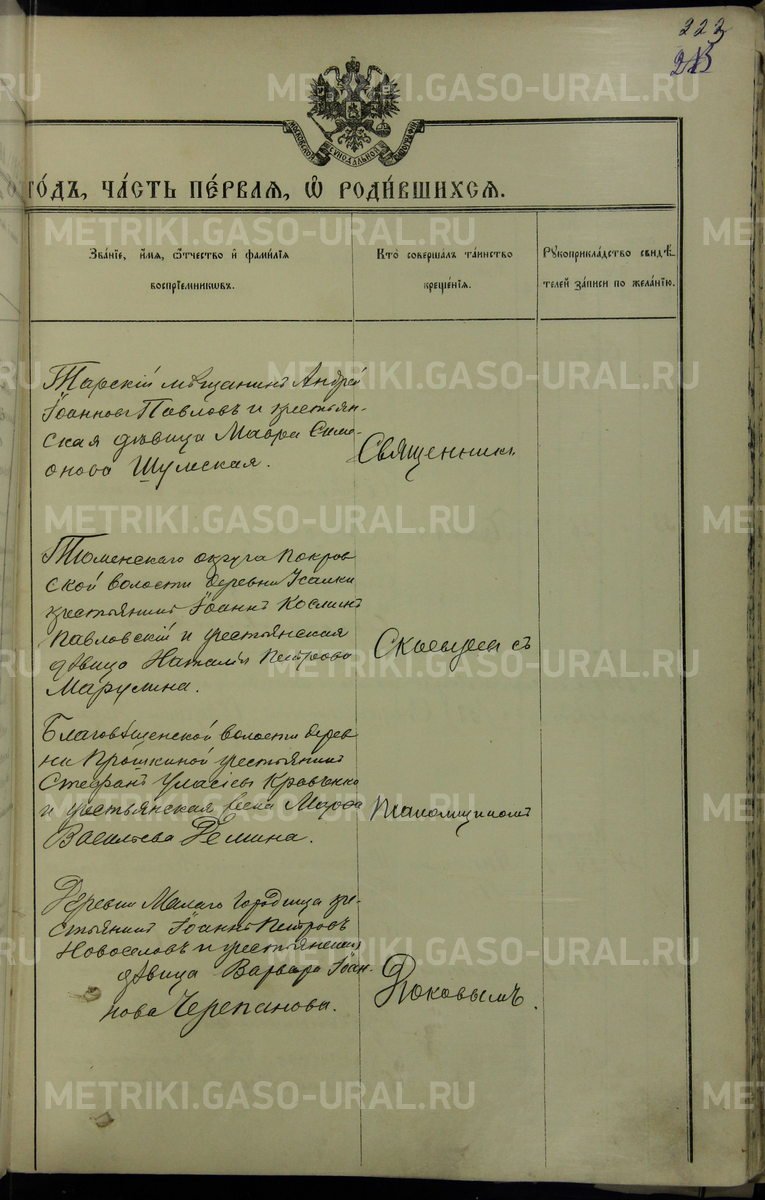 222
METRIKI.GASO-URAL.RU
МОСКОВСКОЙ СѴНОДАЛЬНОЙ
ГО́ДЪ, ЧА́СТЬ ПЕ́РВАЯ, Ѽ РОДИ́ВШИХСЯ.
Зва́нїе, и́мя, ѻ́тчество и҆ фами́лїя
воспрїемникѡвъ.
Кто̀ соверша́лъ та́инство
креще́нїя.
Рꙋкоприкла́дство свидѣ-
телей за́писи по жела́нїю.
Тарскій мѣщанинъ Андрей
Іоанновъ Павловъ и крестьян-
ская дѣвица Мавра Симе-
онова Шумская.
Священникъ
Тюменскаго округа Покров
ской волости деревни Усалки
крестьянинъ Іоаннъ Косминъ
Павловскій и крестьянская
дѣвица Наталія Петрова
Марулина.
съ
Благовѣщенской волости дерев
ни Прошкиной крестьянинъ
Стефанъ
и крестьянская жена Марѳа
Васильева Демина.
Псаломщикомъ
Деревни Малаго Городища кре-
стьянинъ Іоаннъ Петровъ
Новоселовъ и крестьянская
дѣвица Варвара Іоан-
нова Черепанова.